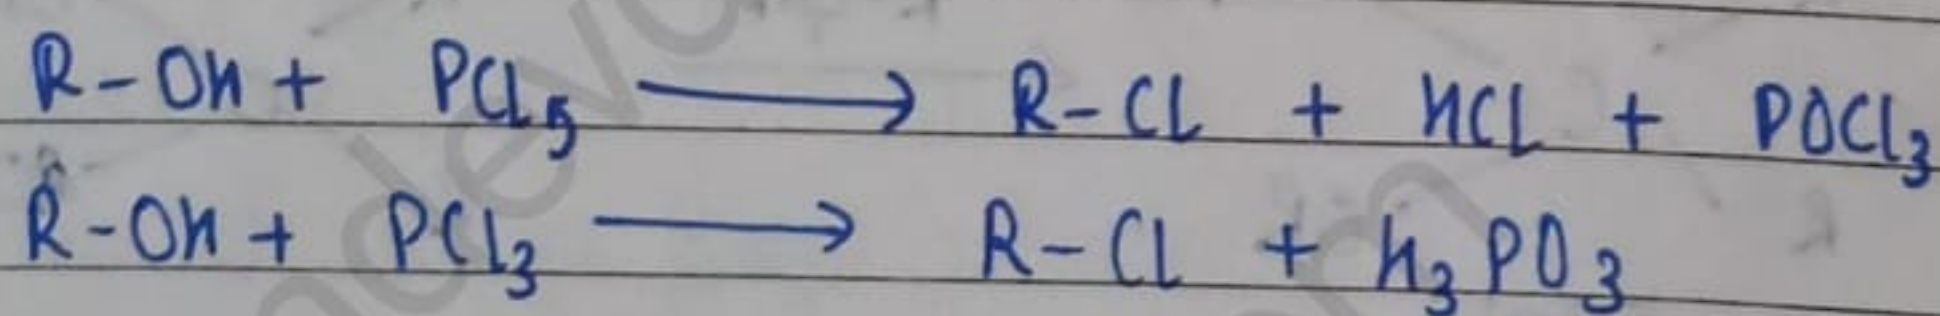 R-OH + PCl₅ ⟶ R-Cl + HCl + POCl₃
R-OH + PCl₃ ⟶ R-Cl + H₃PO₃